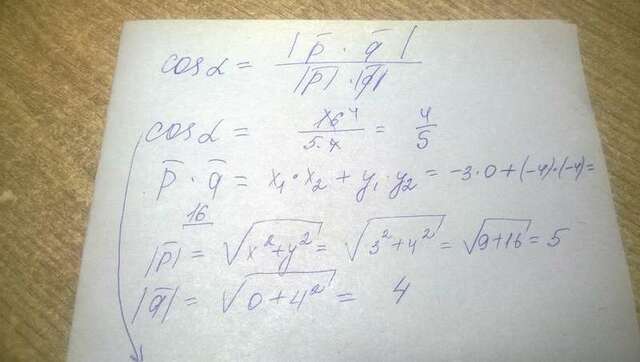 cos α = |p̄ · q̄| / |p̄| · |q̄|
cos α = 16⁴ / 5·4 = 4/5
p̄ · q̄ = x₁ · x₂ + y₁ · y₂ = -3·0 + (-4)·(-4) =
16
|p̄| = √x²+y² = √3²+4² = √9+16 = 5
|q̄| = √0+4² = 4